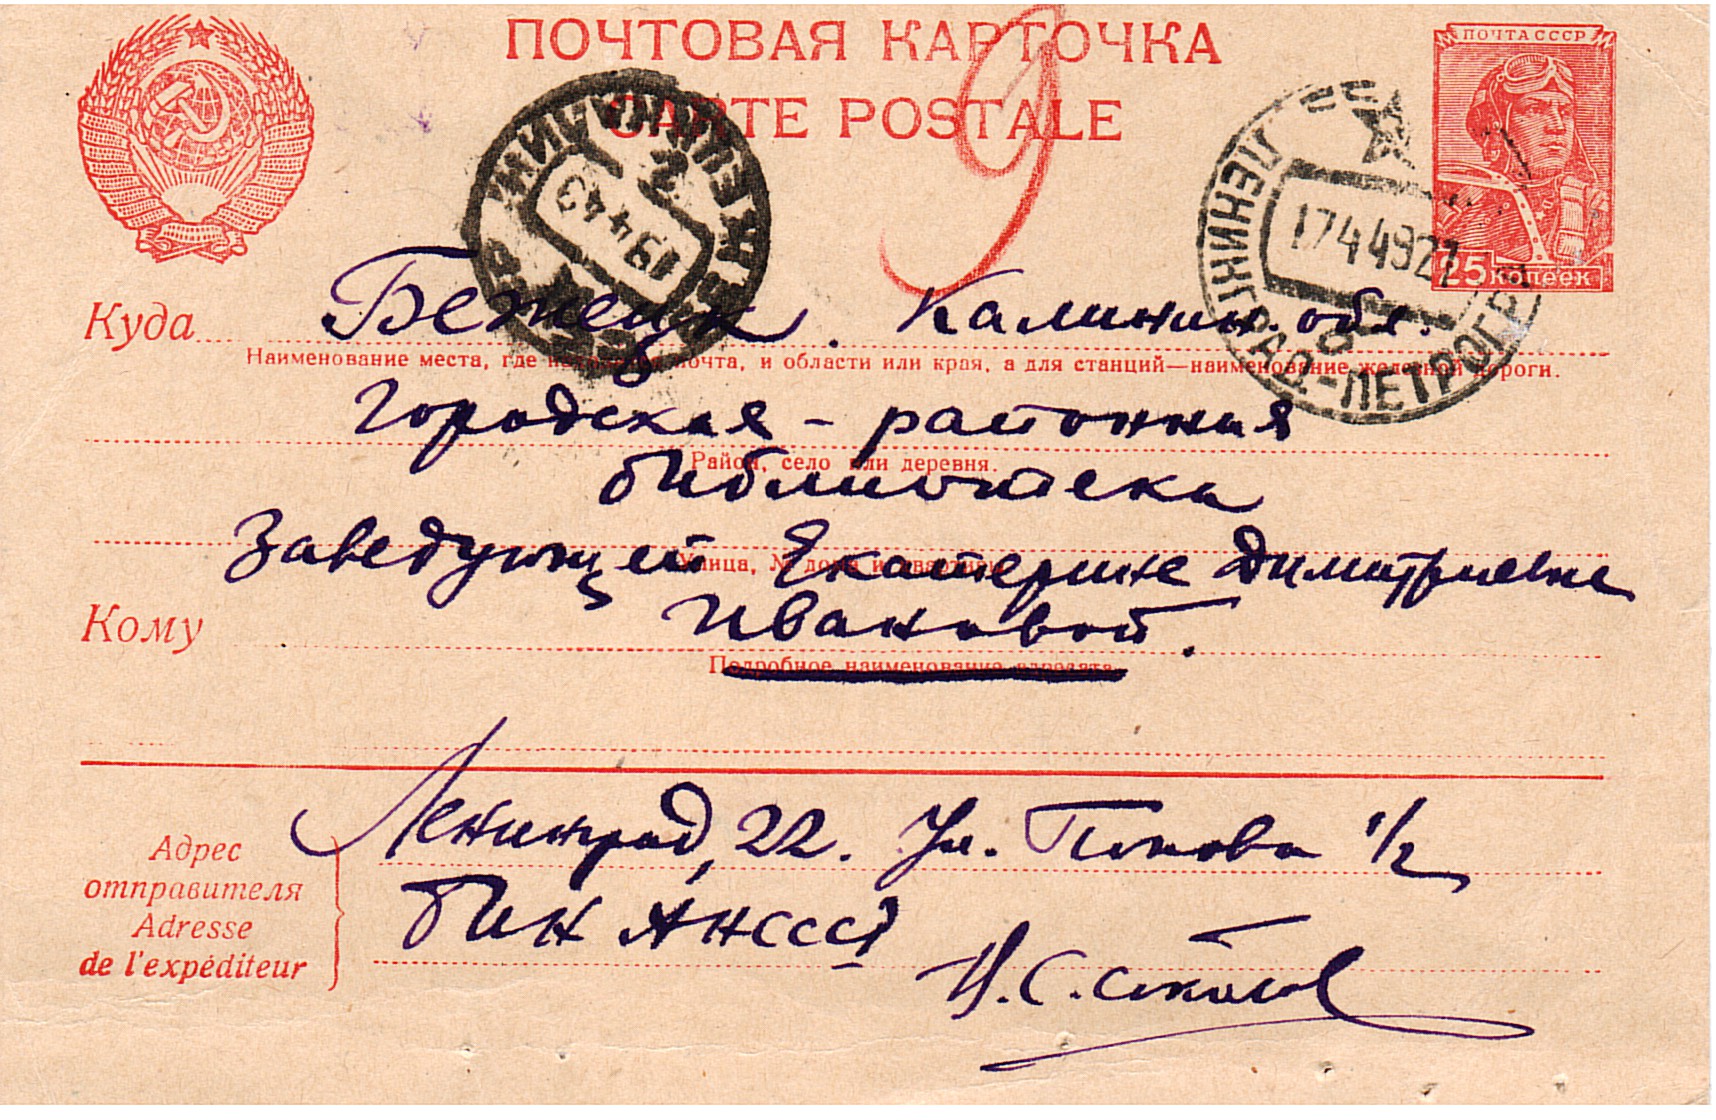 ПОЧТОВАЯ КАРТОЧКА
CARTE POSTALE
ПОЧТА СССР
25 копеек
9
17 4 49 21
ЛЕНИНГРАД-ПЕТРОГР.
19 4 49
Куда Бежецк. Калинин. обл.
Наименование места, где находится почта, и области или края, а для станций—наименование железной дороги.
Городская - районная
Район, село или деревня.
библиотека
Заведующей Екатерине Димитриевне
Улица, № дома и квартиры
Кому Ивановой.
Подробное наименование адресата
Ленинград, 22. Ул. Попова 1/2
Адрес
отправителя
Adresse
de l'expéditeur
БИН АН СССР